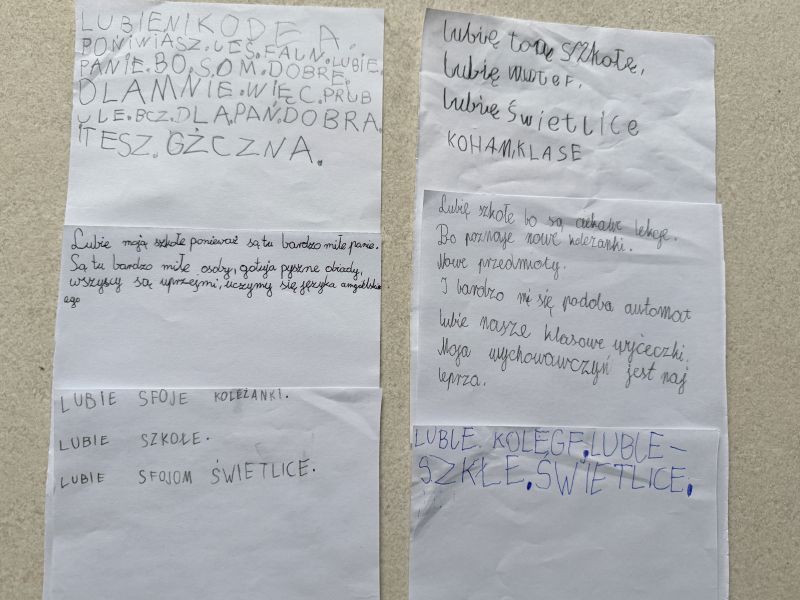 LUBIENIKODEA.
PONIWIASZ.JES.FAJN.LUBIE.
PANIE.BO.SOM.DOBRE.
DLAMNIE.WIĘC.PRUB
UJE.BCZ.DLA.PAŃ.DOBRA.
ITESZ.GŻCZNA.
Lubie moją szkołe ponieważ są tu bardzo miłe panie.
Są tu bardzo miłe osoby, gotują pyszne obiady,
wszyscy są uprzejmi, uczymy się języka angielskie
ego
LUBIE SFOJE KOLEŻANKI.
LUBIE SZKOŁE.
LUBIE SFOJOM ŚWIETLICE.
Lubię szkołę,
Lubię
Lubię świetlice
KOHAM.KLASE
Lubię szkołe bo są ciekawe lekcje.
Bo poznaje nowe koleżanki.
Nowe przedmioty.
I bardzo mi się podoba automat
lubie nasze klasowe wyćeczki.
Moja wychowawczyń jest naj
leprza.
LUBLE. KOLEGE.LUBLE-
SZKŁE.ŚWIETLICE.